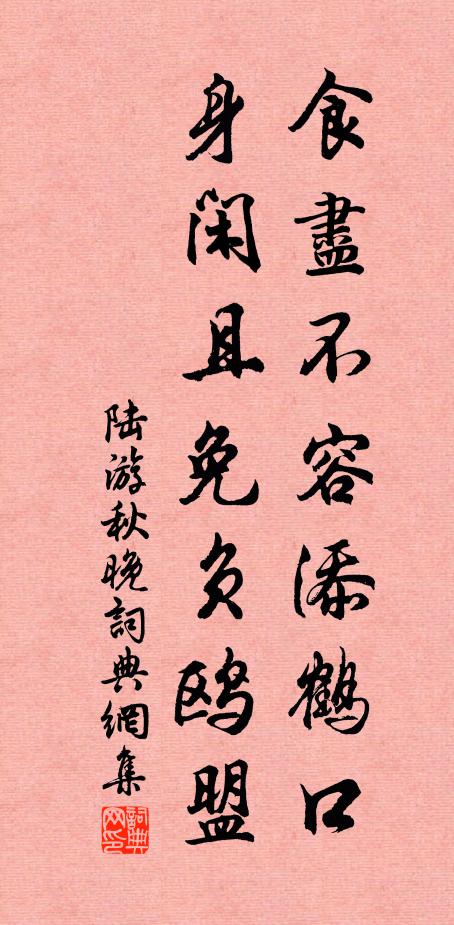 食盡不容添鶴口
身闲且免負鷗盟
陸游秋晚詞典網集
詞典網印